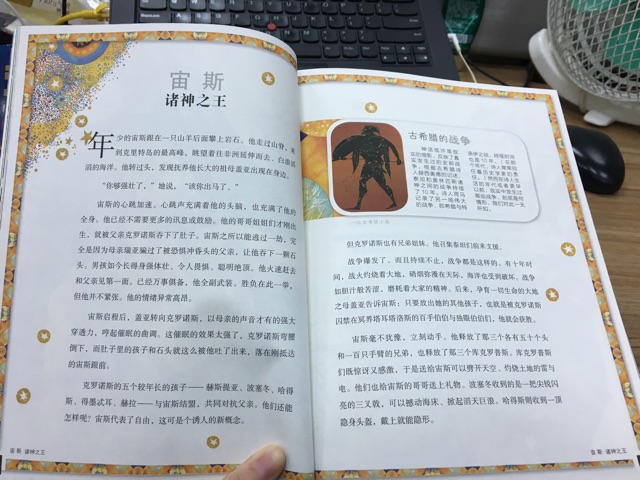 宙斯
诸神之王
年少的宙斯跟在一只山羊后面攀上岩石。他走过山脊，来
到克里特岛的最高峰，眺望着往非洲延伸而去、白浪滔
滔的海洋。他转过头，发现抚养他长大的祖母盖亚出现在身边。
“你够强壮了，”她说，“该你出马了。”
宙斯的心跳加速。心跳声充满着他的头脑，也充满了他的
全身。他已经不需要更多的讯息或鼓励。他的哥哥姐姐们才刚出
生，就被父亲克罗诺斯吞下了肚子。宙斯之所以能逃过一劫，完
全是因为母亲瑞亚骗过了被恐惧冲昏头的父亲，让他吞下一颗石
头。男孩如今长得身强体壮、令人畏惧、聪明绝顶。他火速赶去
和父亲见第一面。已经万事俱备，他全副武装。胜负在此一举，
但他并不紧张。他的情绪异常高昂。
宙斯启程后，盖亚转向克罗诺斯，以母亲的声音才有的强大
穿透力，哼起催眠的曲调。这催眠的效果太强了，克罗诺斯弯腰
倒下，而肚子里的孩子和石头就这么被他吐了出来，落在刚抵达
的宙斯跟前。
克罗诺斯的五个较年长的孩子——赫斯提亚、波塞冬、哈得
斯、得墨忒耳、赫拉——与宙斯结盟，共同对抗父亲。他们还能
怎样呢？宙斯代表了自由，这可是个诱人的新概念。
宙斯 诸神之王
古希腊的战争
但克罗诺斯也有兄弟姐妹。他召集泰坦们前来支援。
战争爆发了。而且持续不止，战争都是这样的。有十年时
间，战火灼烧着大地，硝烟弥漫在天际，海洋也受到破坏。战争
如胆汁般苦涩，磨耗着大家的精神。后来，孕育一切生命的大地
之母盖亚告诉宙斯：只要放出她的其他孩子，也就是被克罗诺斯
囚禁在冥界塔耳塔洛斯的百手伯伯与独眼伯伯们，他就会获胜。
宙斯毫不犹豫，立刻动手。他释放了那三个各有五十个头
和一百只手臂的兄弟，也释放了那三个库克罗普斯。库克罗普斯
们既惊讶又感激，于是送给宙斯可以劈开天空、灼烧土地的雷与
电。他们也给宙斯的哥哥送上礼物。波塞冬收到的是一把尖锐闪
亮的三叉戟，可以撼动海床、掀起滔天巨浪。哈得斯则收到一顶
隐身头盔，戴上就能隐形。
宙斯 诸神之王